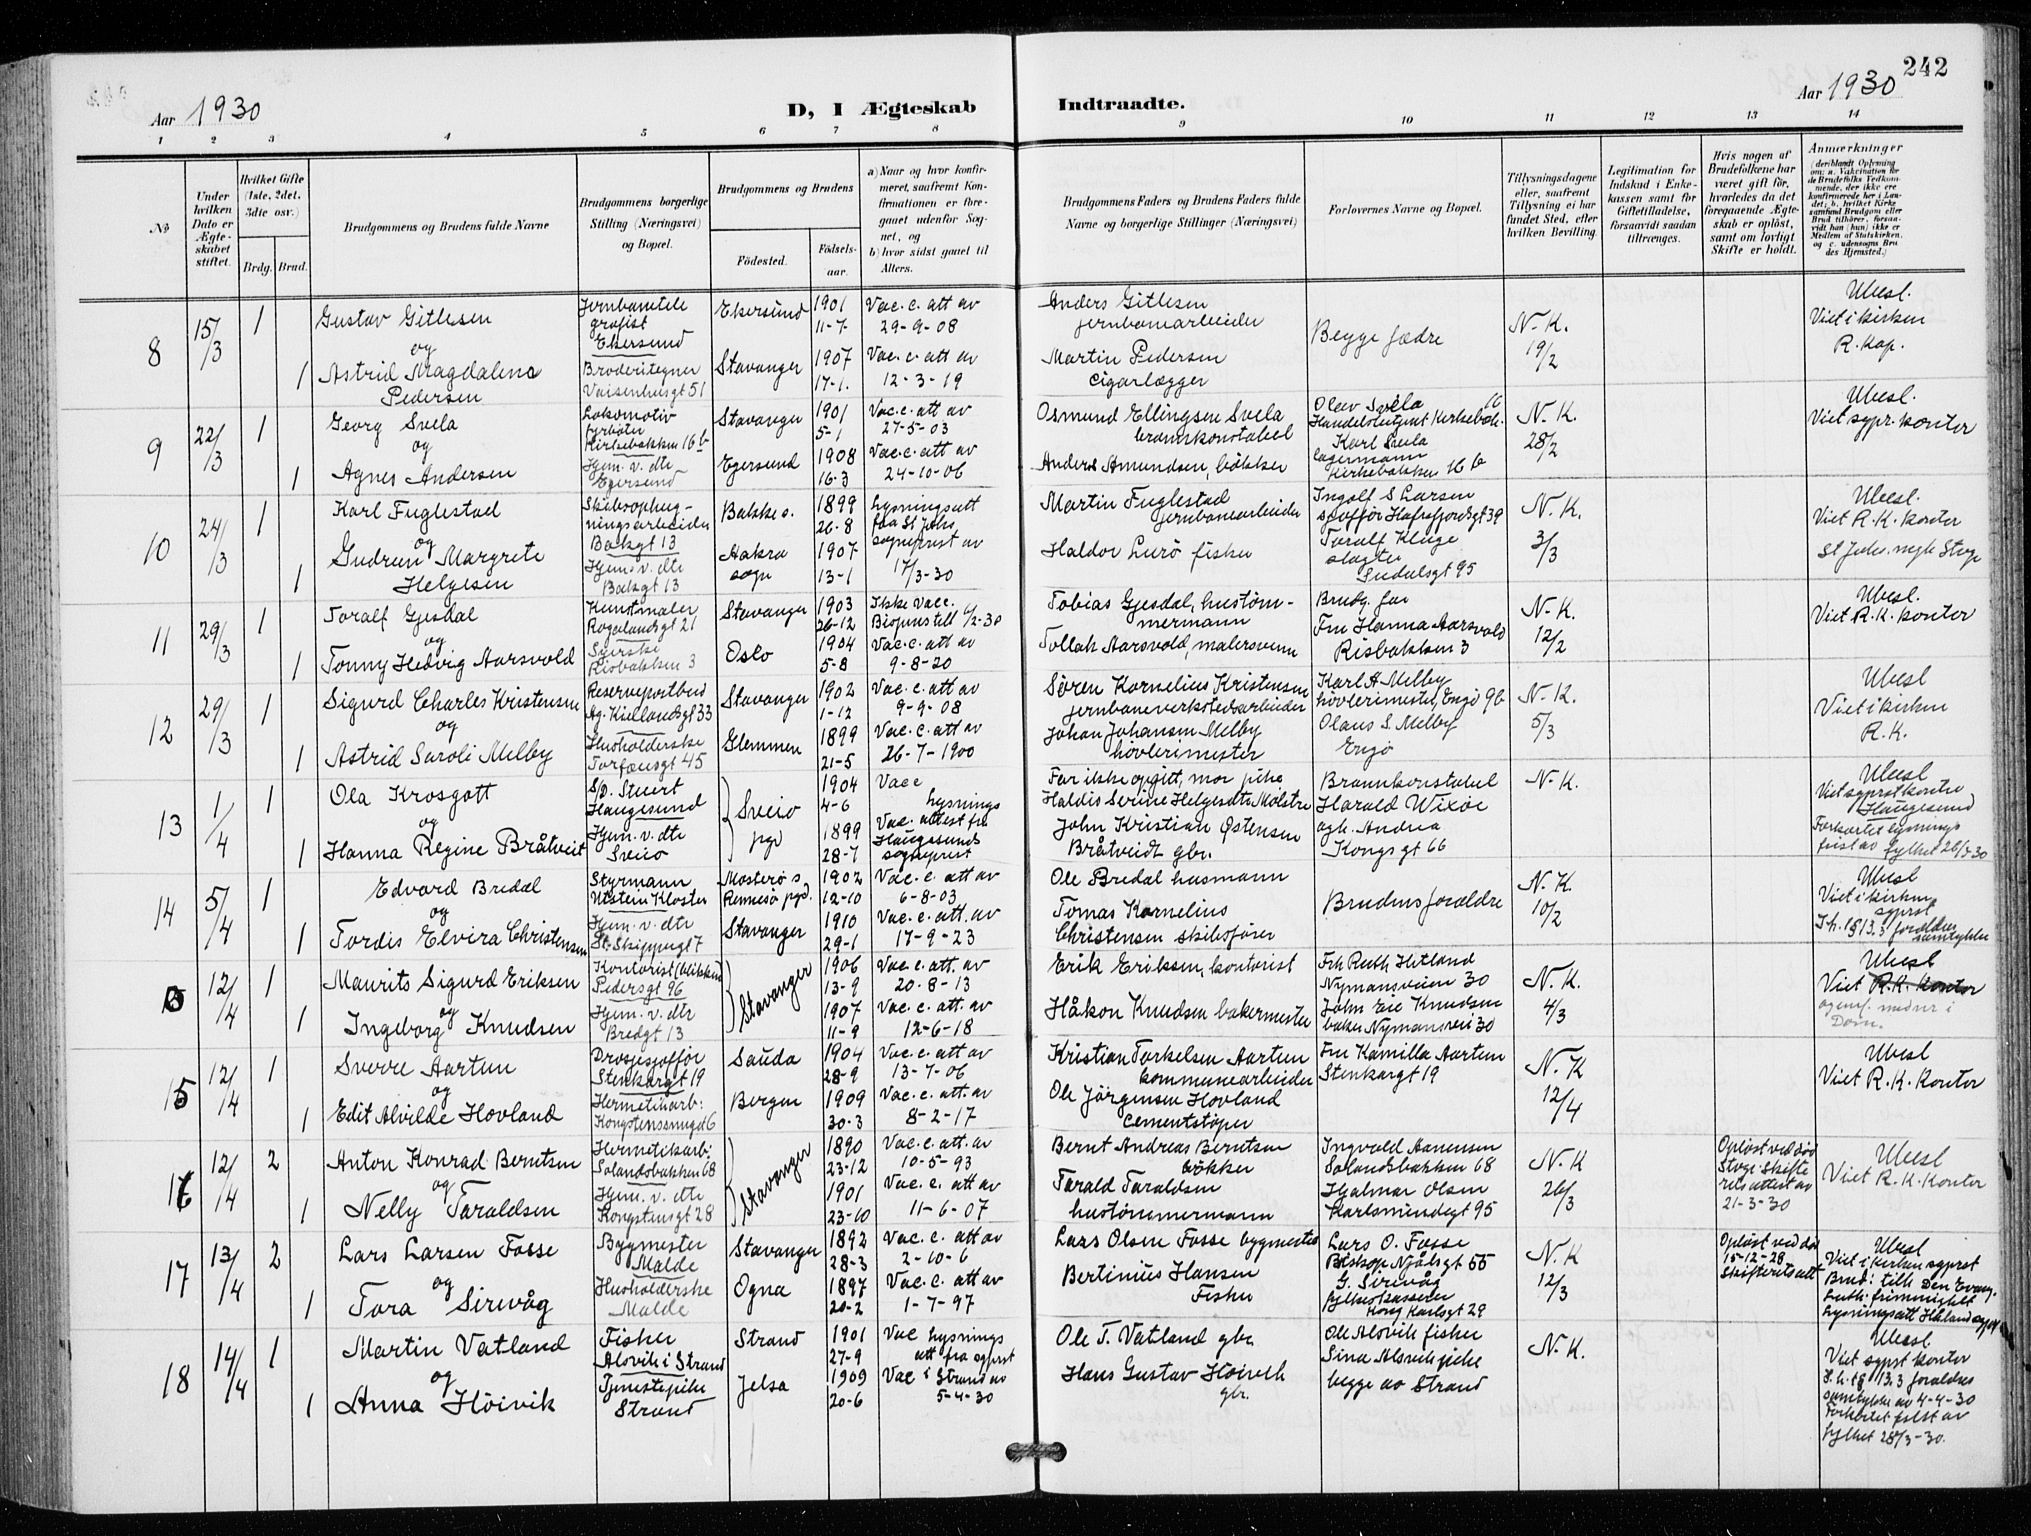 242
Aar 1930
D, I Ægteskab
Indtraadte.
Aar 1930
1 2 3 4 5 6 7 8 9 10 11 12 13 14
No
Under hvilken Dato er Ægteskabet stiftet.
Hvilket Gifte (1ste, 2det, 3die osv.)
Brdg. Brud.
Brudgommens og Brudens fulde Navne
Brudgommens borgerlige Stilling (Næringsvei) og Bopæl.
Brudgommens og Brudens
Fødested.
Fødselsaar.
a) Naar og hvor konfirmeret, saafremt Konfirmationen er foregaaet udenfor Sognet, og
b) hvor sidst gaaet til Alters.
Brudgommens Faders og Brudens Faders fulde Navne og borgerlige Stillinger (Næringsvei)
Forlovernes Navne og Bopæl.
Tillysningsdagene eller, saafremt Tillysning ei har fundet Sted, efter hvilken Bevilling.
Legitimation for Indskud i Enkekassen samt for Giftetilladelse, forsaavidt saadan tiltrænges.
Hvis nogen af Brudefolkene har været gift før, hvorledes da det foregaaende Ægteskab er opløst, samt om lovligt Skifte er holdt.
Anmærkninger
8 15/3 1 Gustav Gitlesen Jernbanetelegrafist Ekersund Ekersund 1901 11-7. Vac. c. att av 29-9-08 Anders Gitlesen jernbanearbeider Begge fædre N.K. 19/2 Ubesl. Viet i kirken R. kap.
og
1 Astrid Magdalena Pedersen Broderitegner Vaisenhusgt 51 Stavanger 1907 17-1. Vac. c. att av 12-3-19 Martin Pedersen cigarlægger
9 22/3 1 Georg Svela Lokomotivfyrbøter Kirkebakken 16 b Stavanger 1901 5-1 Vac. c. att av 27-5-03 Osmund Ellingsen Svela brannkonstabel Olav Svela Karl Svela lagermann Kirkebakken 16 b N.K. 28/2 Ubesl. Viet sgpr. kontor
og
1 Agnes Andersen Hjem. v. dtr Egersund Egersund 1908 16-3 Vac. c. att av 24-10-06 Anders Amundsen, bøkker
10 24/3 1 Karl Fuglestad Skibsophugningsarbeider Baksgt 13 Bakke s. 1899 26-8 Lysningsatt fra St Johs. sogneprest av 17/3-30 Martin Fuglestad jernbanearbeider Ingolf S Larsen sjoffør Hafrsfjordsgt 39 N.K. 3/3 Ubesl. Viet R.K. kontor
og
1 Gudrun Margrete Helgesen Hjem. v. dtr Baksgt 13 Aakra sogn 1907 13-1 Haldor Lurø fisker Toralf Kluge slagter 95
11 29/3 1 Toralf Gjesdal Kunstmaler Rogalandsgt 21 Stavanger 1903 26-12 Ikke vacc. Tobias Gjesdal, hustømmermann Brudg. far N.K. 12/2 Ubesl. Viet R.K. kontor
og
1 Tonny Hedvig Aarsvold Syerske Risbakken 3 Oslo 1904 5-8 Vac. c. att av 9-8-20 Tollak Aarsvold, malersvenn Fru Hanna Aarsvold Risbakken 3
12 29/3 1 Sigurd Charles Kristensen Reservepostbud Ag. Kiellandsgt 33 Stavanger 1902 1-12 Vac. c. att av 9-9-08 Søren Kornelius Kristensen jernbaneverkstedsarbeider Karl A Melby høvlerimester, Engø 9b N.K. 5/3 Ubesl Viet i kirken R.K.
og
1 Astrid Saroli Melby Husholderske Torfæusgt 45 Glemmen 1899 21-5 Vac. c. att av 26-7-1900 Johan Johansen Melby høvlerimester Olaus S. Melby Engø
13 1/4 1 Ola Krosgott Stuert Haugesund Sveio pgd 1904 4-6 Vacc Far ikke opgitt, mor pike Haldis Serine Brannkonstabel Harald Wixøe N.K. Ubesl Viet sgprst kontor Haugesund
og
1 Hanna Regine Bråtveit Hjem. v. dtr Sveio 1899 28-7 Vac. Lysnings attest fra Haugesunds sogneprest John Kristian Østensen Bråtveidt gbr. ogh. Andrea Kongsgt 66 Forkortet lysningsfrist av fylket 26/3 30
14 5/4 1 Edvard Bredal Styrmann Utstein Kloster Mosterø s Rennesø pgd. 1902 12-10 Vac. c. att av 6-8-03 Ole Bredal husmann Brudens forældre N.K. 10/2 Ubesl Viet i kirken sgprst
og
1 Tordis Elvira Christensen Hjem. v. dtr St. Skippergt 7 Stavanger 1910 29-1 Vac. c. att. av 17-9-23 Tomas Kornelius Christensen skibsfører forældres samtykke
12/4 1 Maurits Sigurd Eriksen Kontorist Pedersgt 96 Stavanger 1906 13-9 Vac. c. att. av 20-8-13 Erik Eriksen, kontorist Frk Ruth Hetland Nymansveien 30 N.K. 4/3 Ubesl Viet R.K. kontor
og
1 Ingeborg Knudsen Hjem. v. dtr Bredgt 13 1907 11-9 Vac. c. att. av 12-6-18 Håkon Knudsen bakermester John Eie Knudsen baker Nymansvei 30
15 12/4 1 Sverre Aartun Drosjesjoffør Stenkargt 19 Sauda 1904 28-9 Vac. c. att av 13-7-06 Kristian Torkelsen Aartun kommunearbeider Fru Kamilla Aartun Stenkargt 19 N.K 12/4 Ubesl Viet R.K. kontor
og
1 Edit Alvilde Hovland Hermetikarb: Kongstenssmuget 6 Bergen 1909 30-3 Vac. c. att. av 8-2-17 Ole Jörgensen Hovland cementstøper
16 12/4 2 Anton Konrad Berntsen Hermetikarb. Solandsbakken 68 Stavanger 1890 23-12 Vac. c. att. av 10-5-93 Bernt Andreas Berntsen bøkker Ingvald Aanensen Solandsbakken 68 N.K 26/3 Opløst ved død Stvgr. skifterets attest av 21-3-30 Ubesl Viet R.K. kontor
og
1 Nelly Taraldsen Hjem. v. dtr Kongstensgt 28 1901 23-10 Vac. c. att av 11-6-07 Tarald Taraldsen hustømmermann Hjalmar Olsen Karlsmindegt 95
17 13/4 2 Lars Larsen Fosse Bygmester Malde Stavanger 1892 28-3 Vac. c. att av 2-10-6 Lars Olsen Fosse bygmester Lars O. Fosse Biskop Njålsgt 55 N.K 12/3 Opløst ved død 15-12-28 Skifterets att Ubesl Viet i kirken sgprst
og
1 Tora Sirevåg Husholderske Malde Ogna 1897 20-2 Vac. c. att av 1-7-97 Bertinius Hansen Fisker G. Sirevåg fylkeskasserer Kong Karlsgt 29 Brud: tilh Den Evang. Luth: frimenighet Lysningsatt Håland
18 14/4 1 Martin Vatland Fisker Alsvik i Strand Strand 1901 27-9 Vac lysnings att fra sgprst Ole T. Vatland gbr. Ole Alsvik fisker Sina Alsvik pike begge av Strand N.K. Ubesl Viet sgprst kontor
og
1 Anna Höivik Tjenestepike Strand Jelsa 1909 20-6 Vac i Strand av 5-4-30 Hans Gustav Höivik gbr. forældres samtykke av 4-4-30 Forkortet frist av fylket 28/3-30.